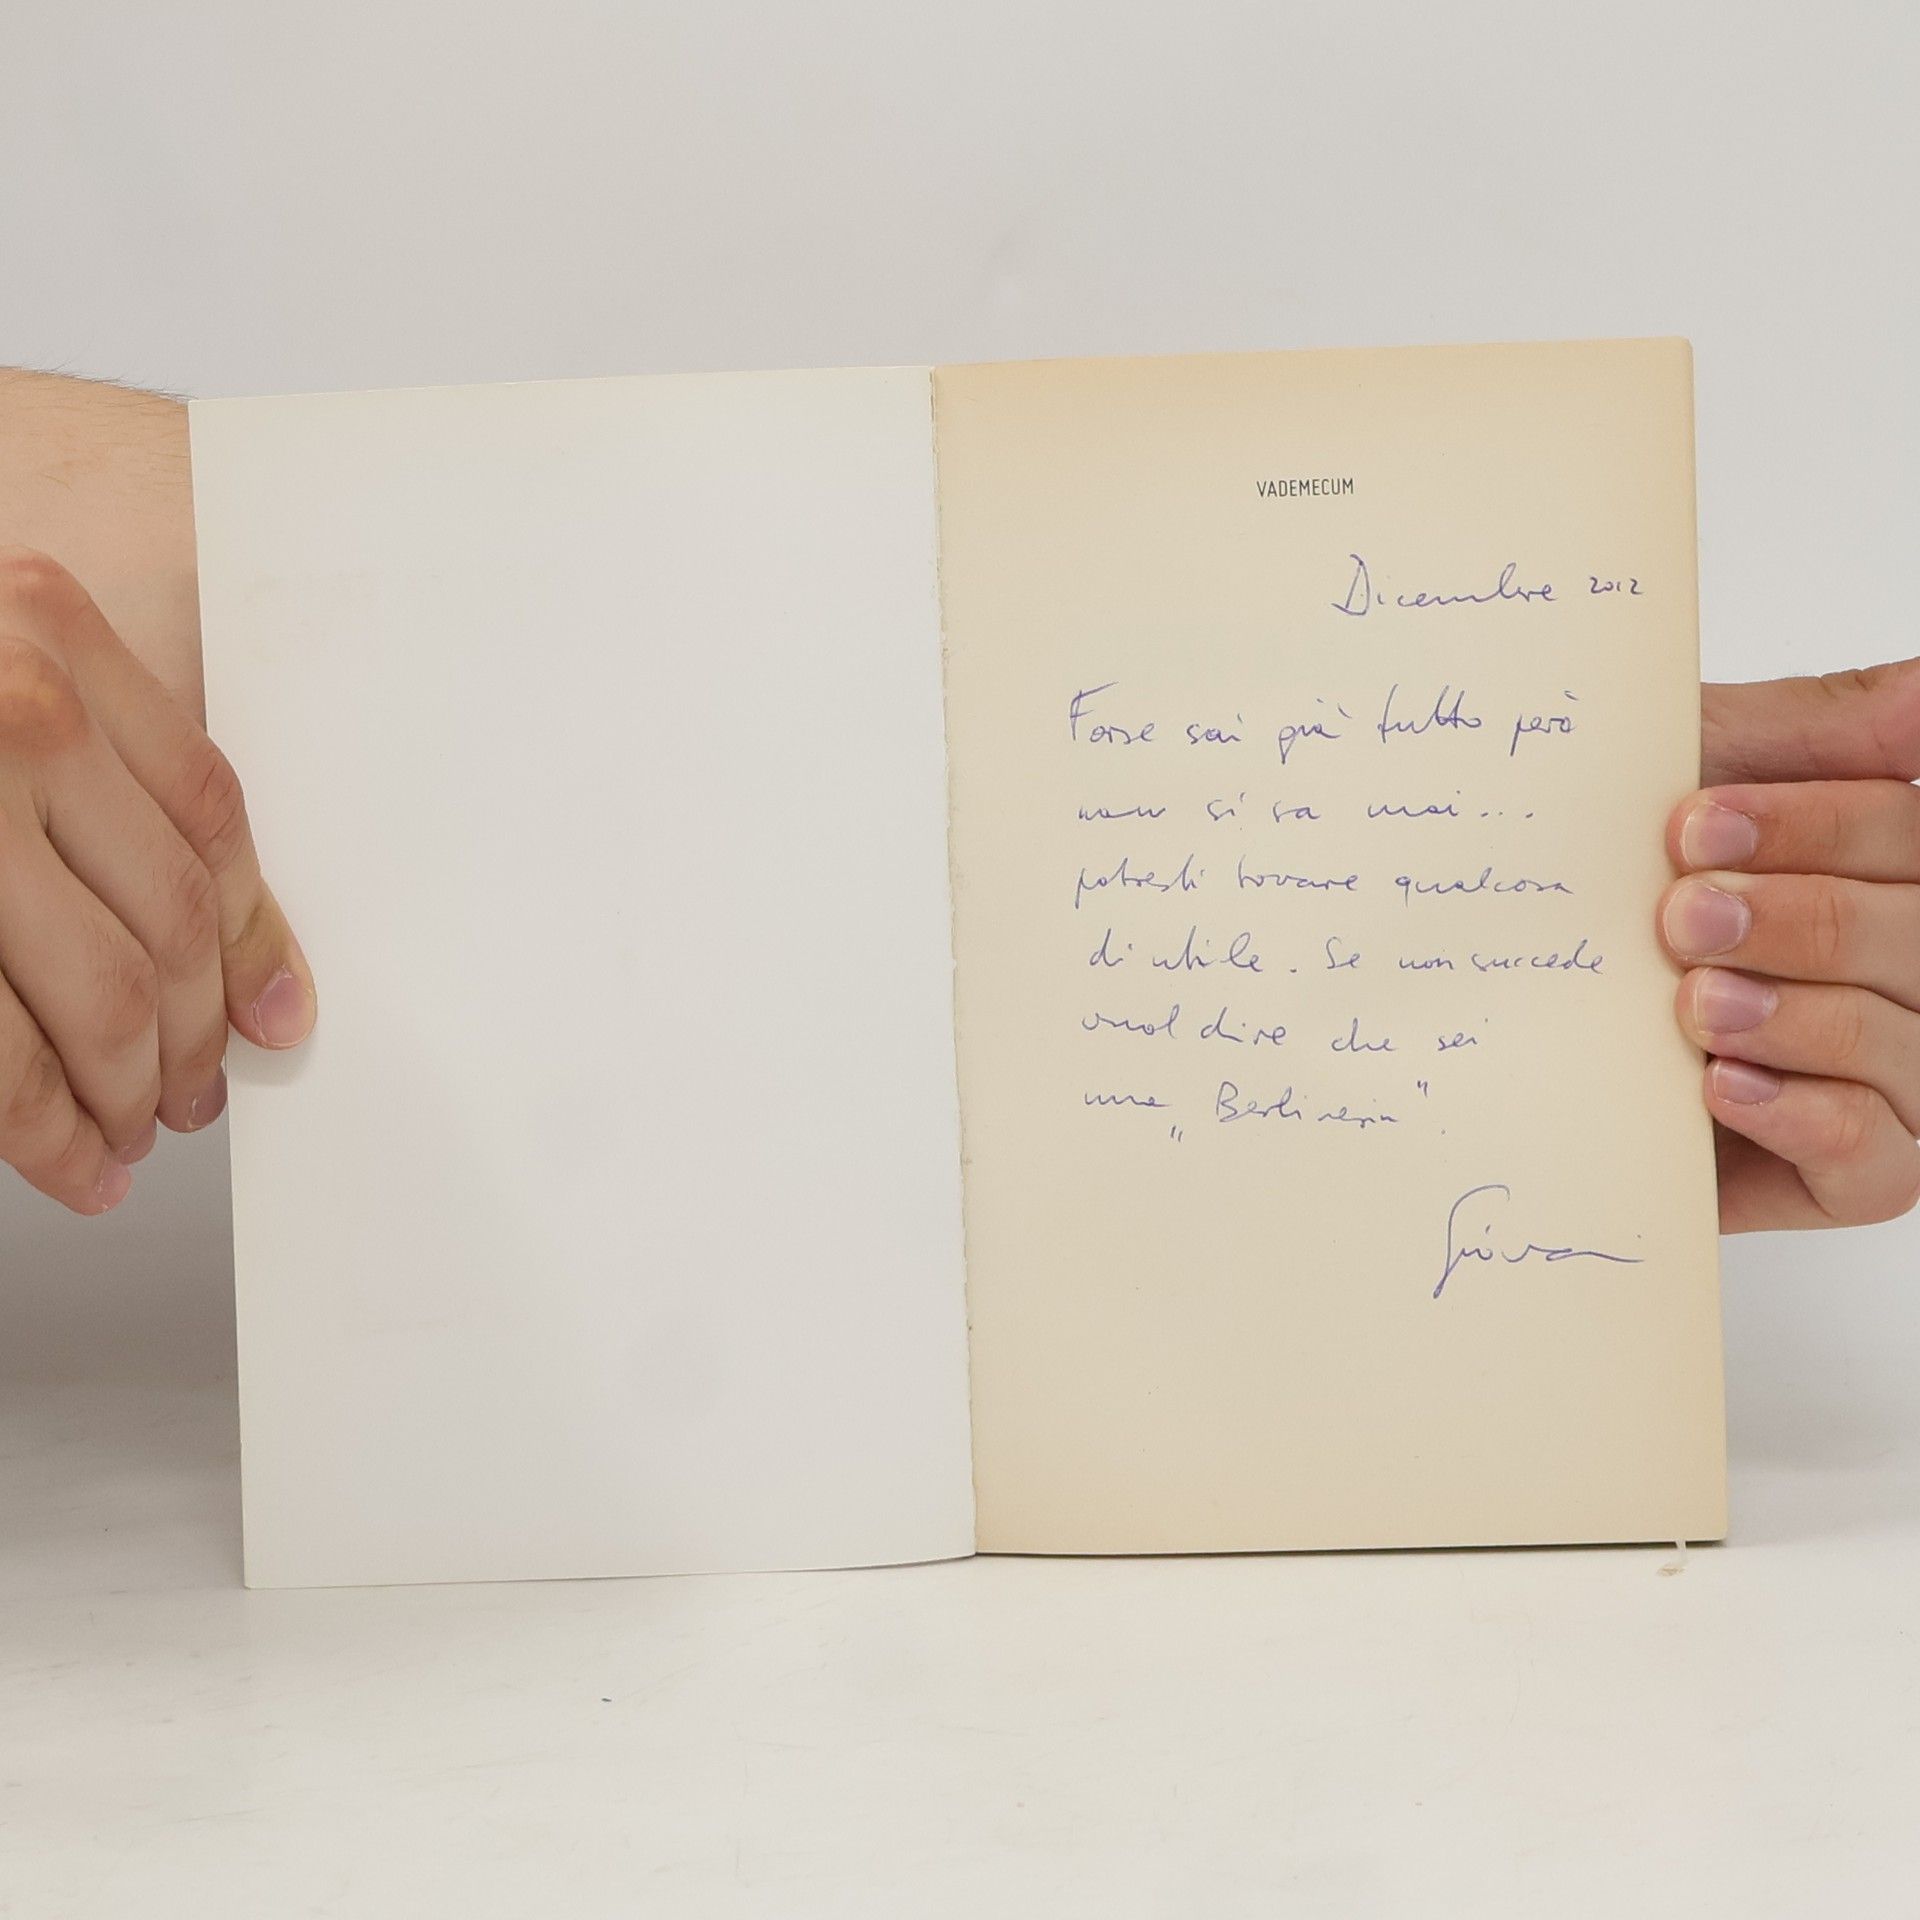 VADEMECUM
Dicembre 2012
Forse sai già tutto però
non si sa mai...
potresti trovare qualcosa
di utile. Se non succede
vuol dire che sei
una „Berlinesin".
Giovanni